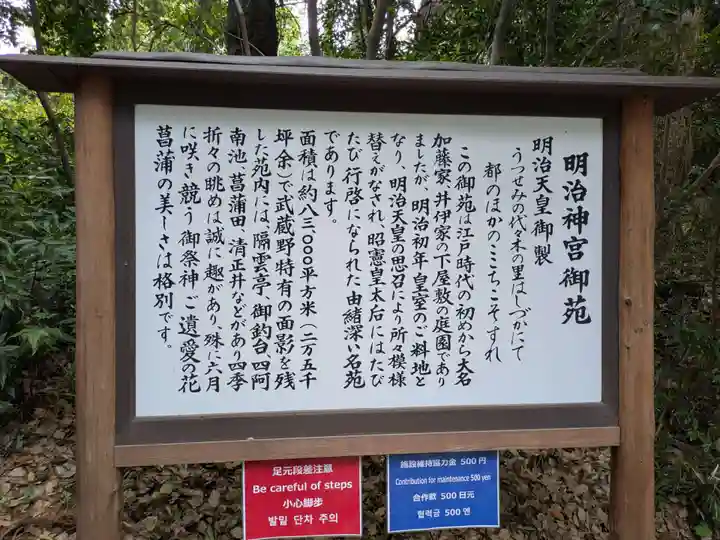 明治神宮御苑
明治天皇御製
うつせみの代々木の里はしづかにて
都のほかのこゝちこそすれ
この御苑は江戸時代の初めから大名
加藤家、井伊家の下屋敷の庭園であり
ましたが、明治初年皇室のご料地と
なり、明治天皇の思召により所々模様
替えがなされ、昭憲皇太后にはたび
たび行啓になられた由緒深い名苑
であります。
面積は約八三、〇〇〇平方米（二万五千
坪余）で武蔵野特有の面影を残
した苑内には、隔雲亭、御釣台、四阿
南池、菖蒲田、清正井などがあり四季
折々の眺めは誠に趣があり、殊に六月
に咲き競う御祭神ご遺愛の花
菖蒲の美しさは格別です。
足元段差注意
Be careful of steps
小心脚步
발밑 단차 주의
施設維持協力金 500円
Contribution for maintenance 500 yen
合作款 500日元
협력금 500 엔